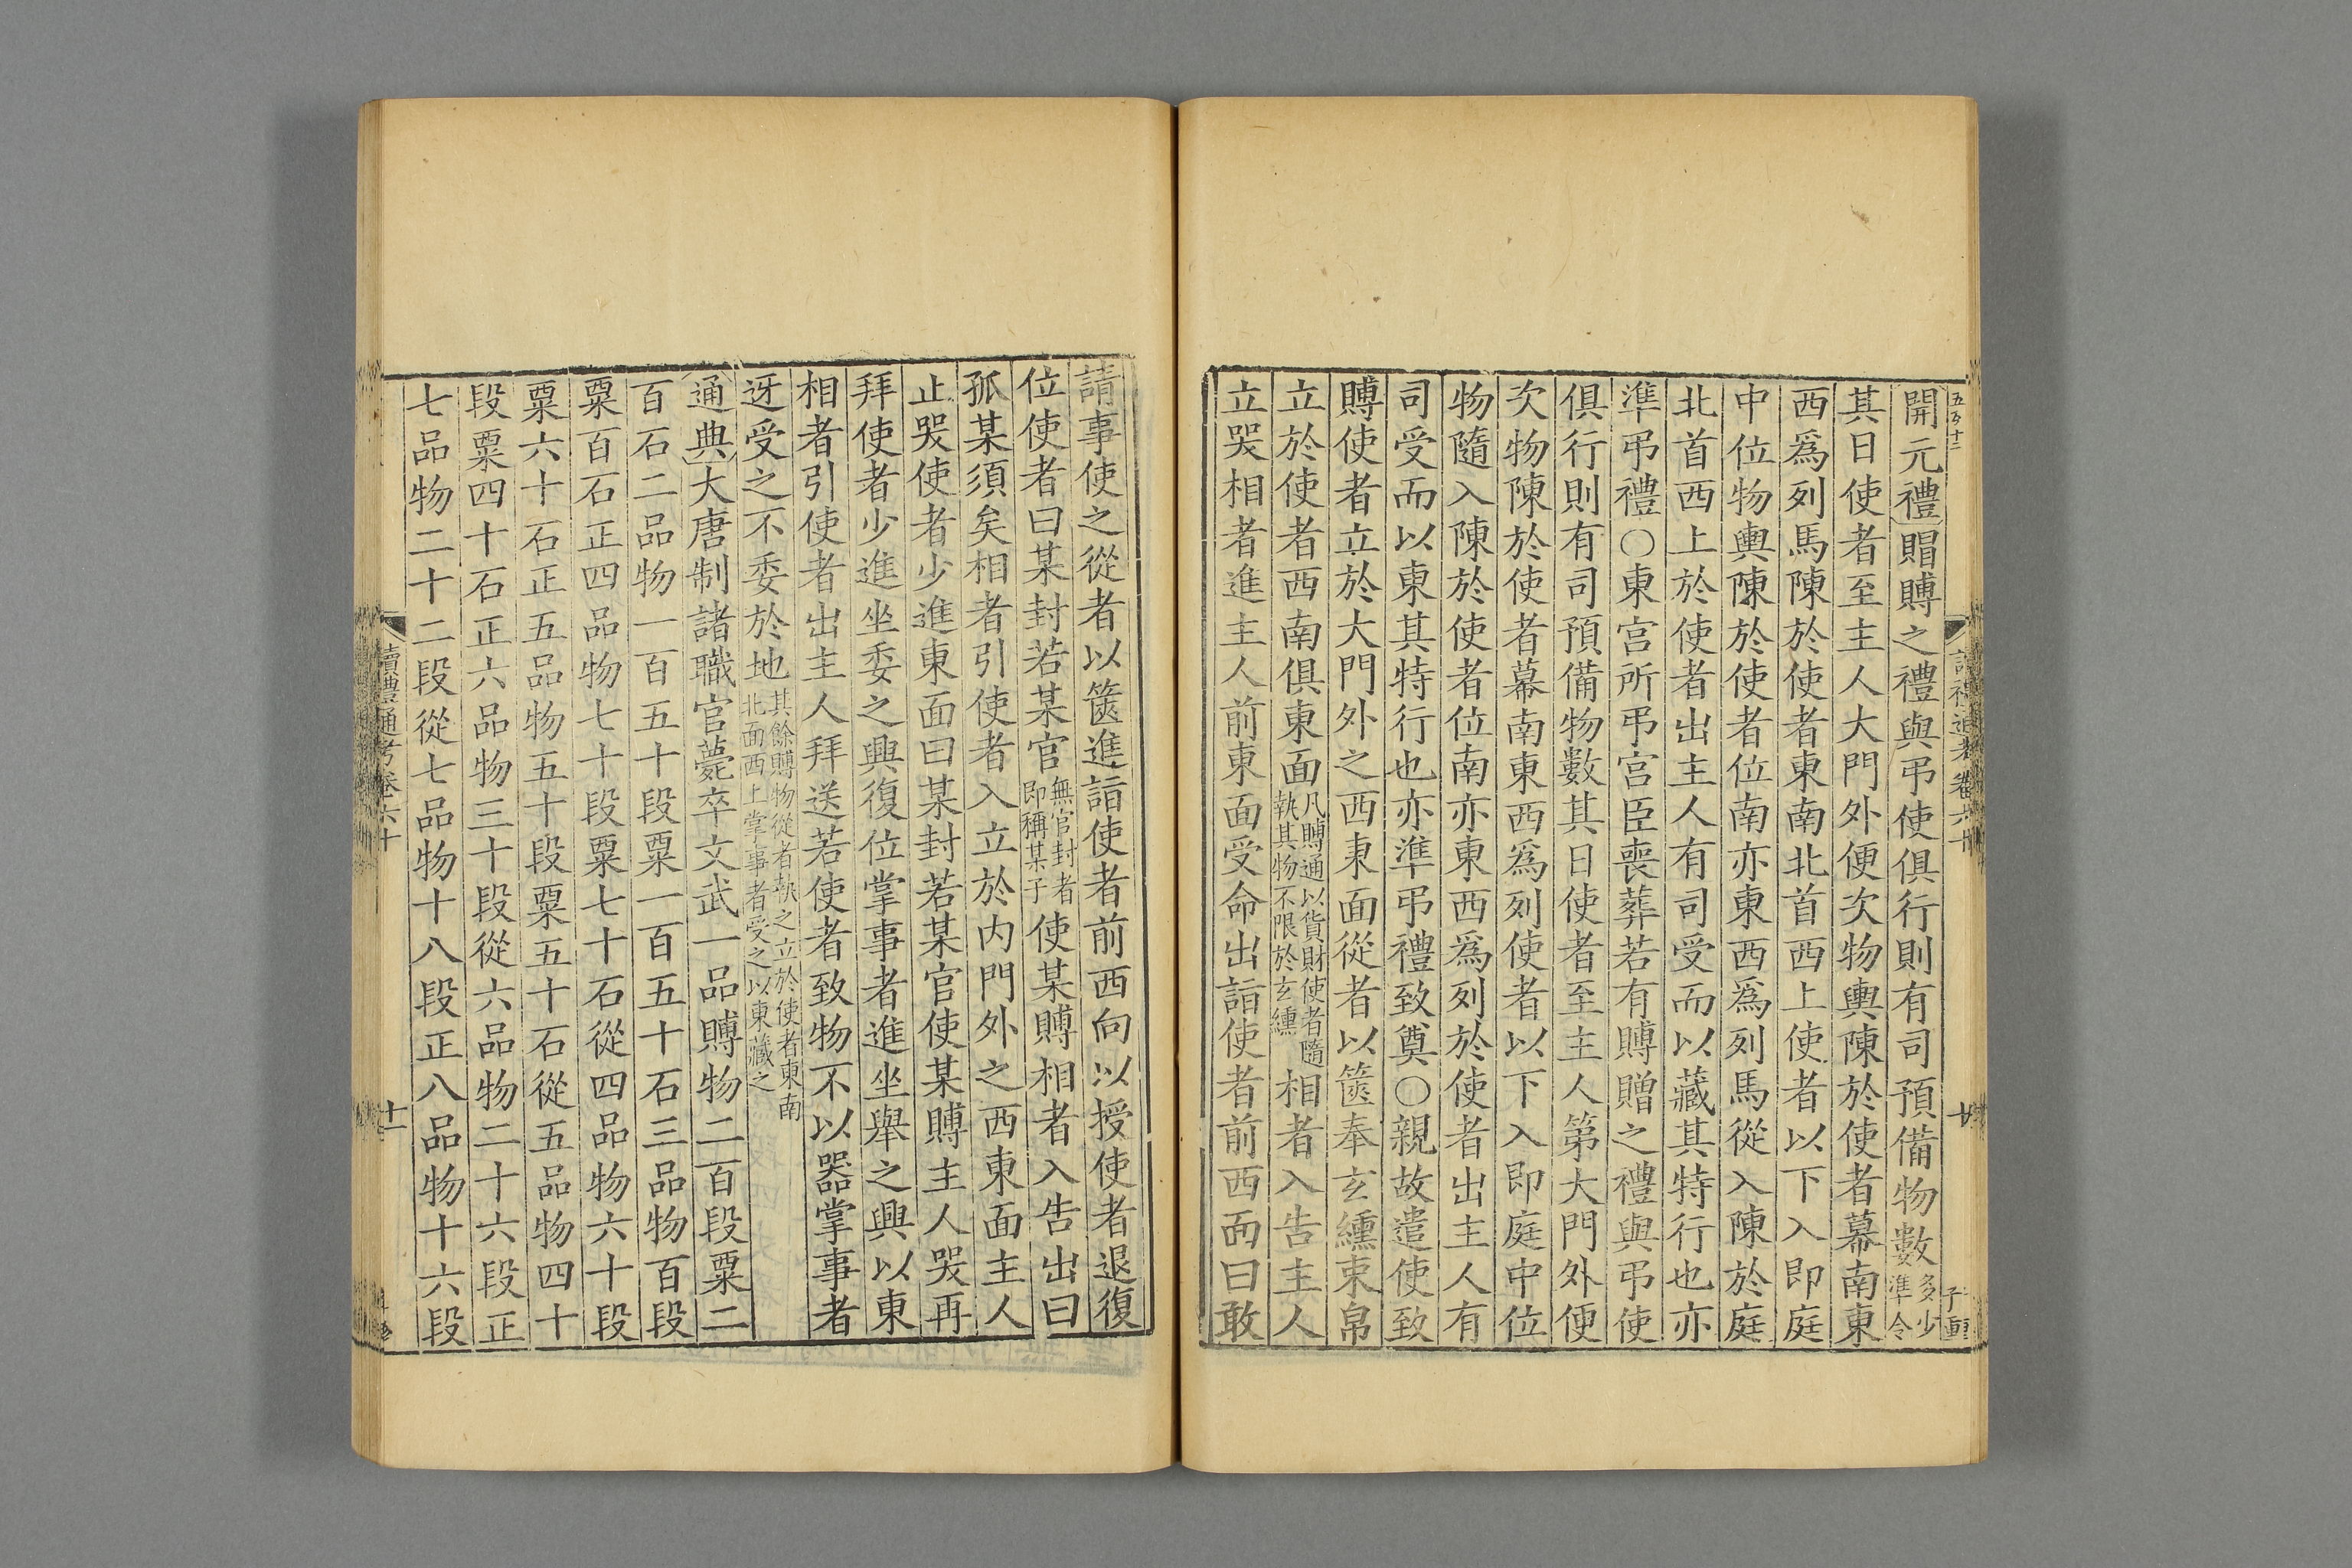 開元禮賵賻之禮與弔使俱行則有司預備物數多少準令
其日使者至主人大門外便次物輿陳於使者幕南東
西爲列馬陳於使者東南北首西上使者以下入即庭
中位物輿陳於使者位南亦東西爲列馬從入陳於庭
北首西上於使者出主人有司受而以藏其特行也亦
準弔禮○東宮所弔宮臣喪葬若有賻贈之禮與弔使
俱行則有司預備物數其日使者至主人第大門外便
次物陳於使者幕南東西爲列使者以下入即庭中位
物隨入陳於使者位南亦東西爲列於使者出主人有
司受而以東其特行也亦準弔禮致奠○親故遣使致
賻使者立於大門外之西東面從者以篋奉玄纁束帛
立於使者西南俱東面凡賻通以貨財使者隨執其物不限於玄纁相者入告主人
立哭相者進主人前東面受命出詣使者前西面曰敢
請事使之從者以篋進詣使者前西向以授使者退復
位使者曰某封若某官無官封者即稱某子使某賻相者入告出曰
孤某須矣相者引使者入立於内門外之西東面主人
止哭使者少進東面曰某封若某官使某賻主人哭再
拜使者少進坐委之興復位掌事者進坐舉之興以東
相者引使者出主人拜送若使者致物不以器掌事者
迓受之不委於地其餘賻物從者執之立於使者東南北面西上掌事者受之以東藏之
通典大唐制諸職官薨卒文武一品賻物二百段粟二
百石二品物一百五十段粟一百五十石三品物百段
粟百石正四品物七十段粟七十石從四品物六十段
粟六十石正五品物五十段粟五十石從五品物四十
段粟四十石正六品物三十段從六品物二十六段正
七品物二十二段從七品物十八段正八品物十六段
讀禮通考卷六十
十一